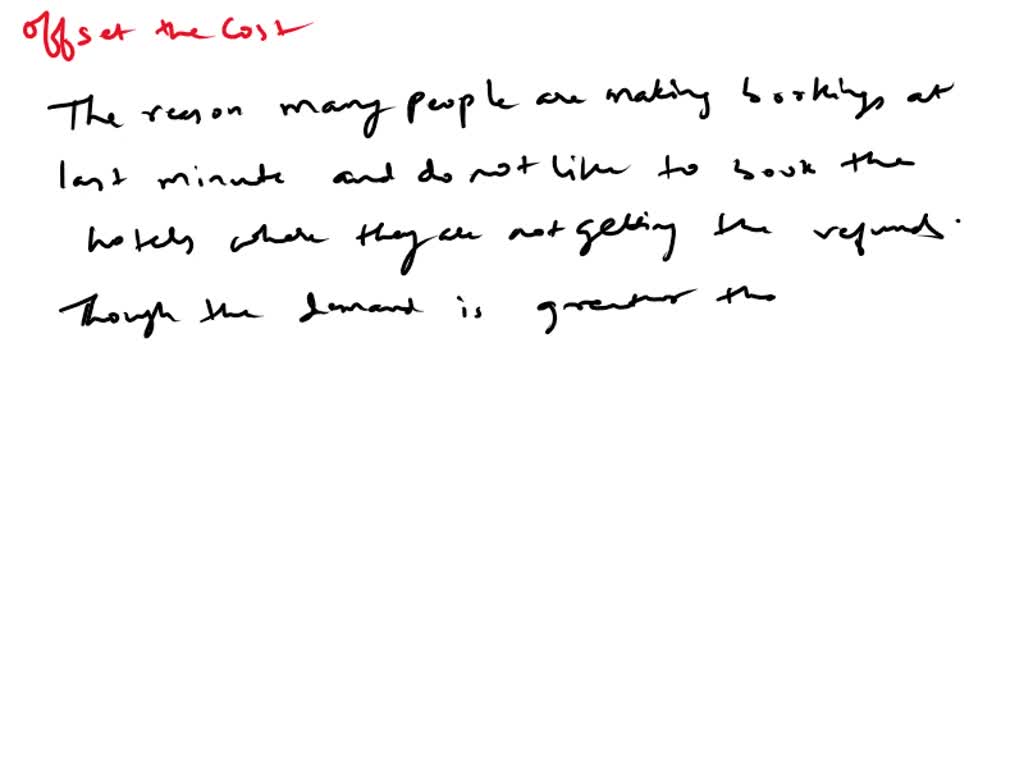 Offset the Cost
The reason many people are making bookings at
last minute and do not like to book the
hotels where they are not getting the refunds.
Though the demand is greater the